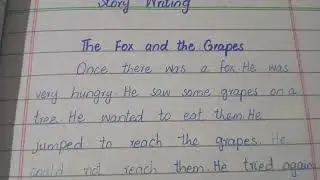 Story Writing
The Fox and the Grapes
Once there was a fox. He was
very hungry. He saw some grapes on a
tree. He wanted to eat them. He
jumped to reach the grapes. He
could not reach them. He tried again